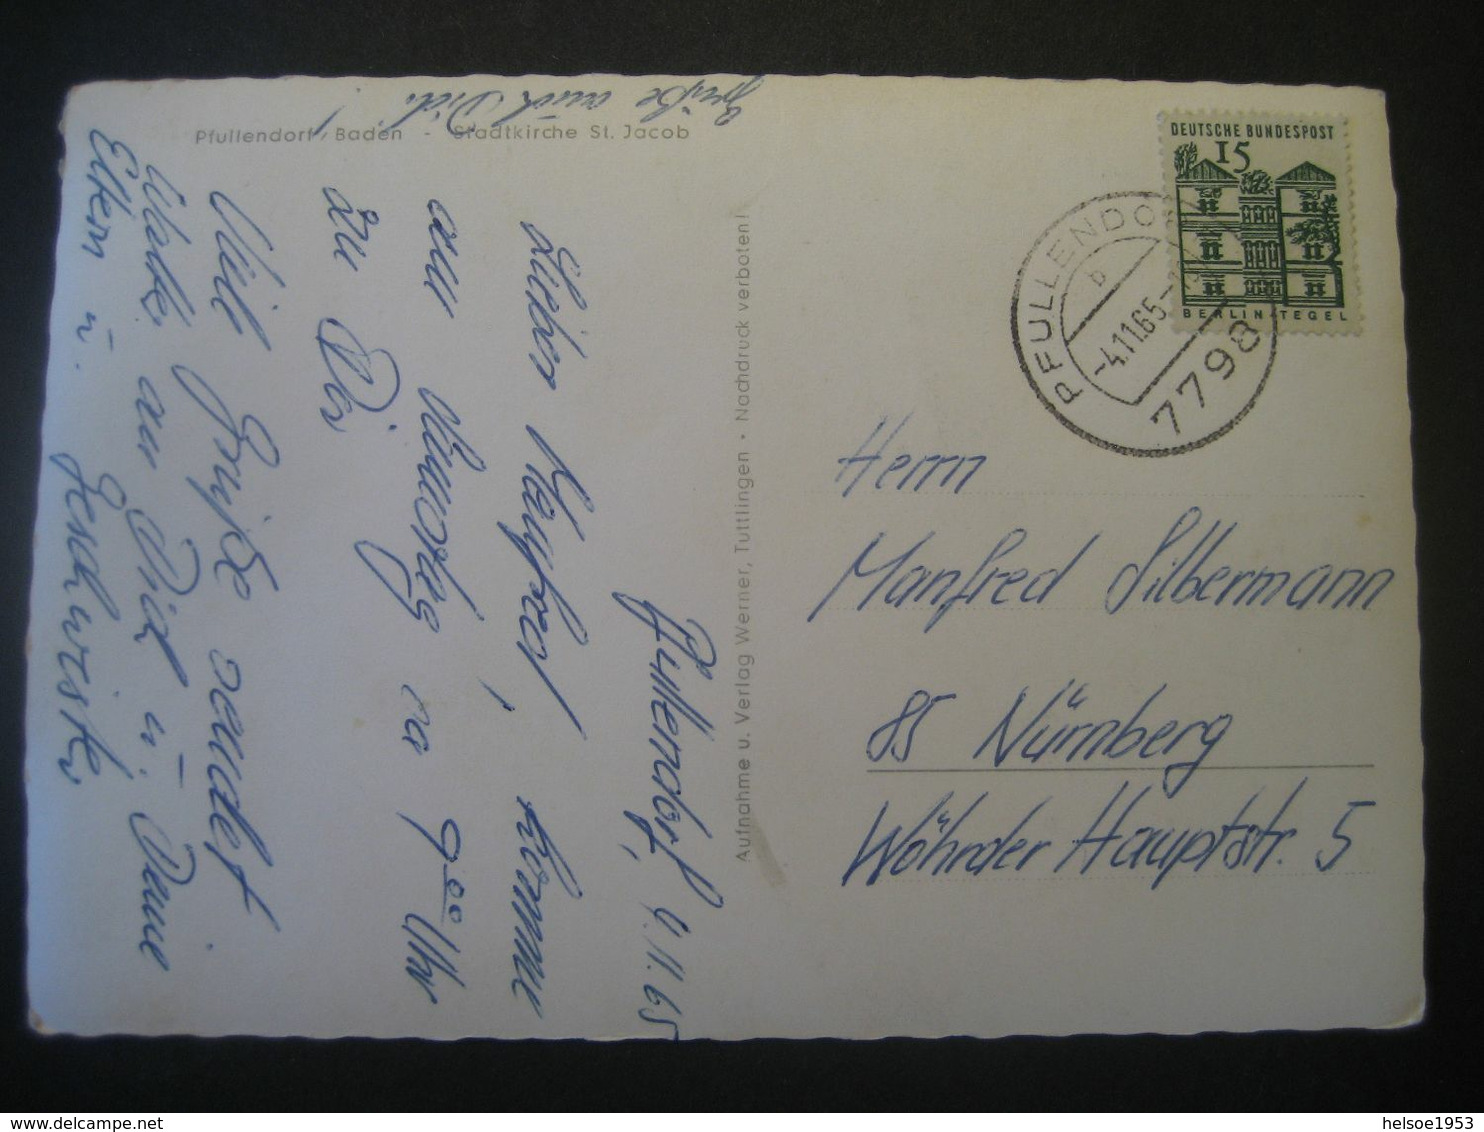 Pfullendorf/Baden - Stadtkirche St. Jacob
Pfullendorf, 4.11.65
Lieber Manfred, komme
am Samstag ca 9 00 Uhr
zu Dir
Viele Grüße sendet
an Dich u. Deine
Eltern u. Geschwister
Grüße auch Didi!
Aufnahme u. Verlag Werner, Tuttlingen • Nachdruck verboten!
DEUTSCHE BUNDESPOST
15
BERLIN-TEGEL
PFULLENDORF
b
-4.11.65-
7798
Herrn
Manfred Silbermann
85 Nürnberg
Wöhrder Hauptstr. 5
helsoe1953